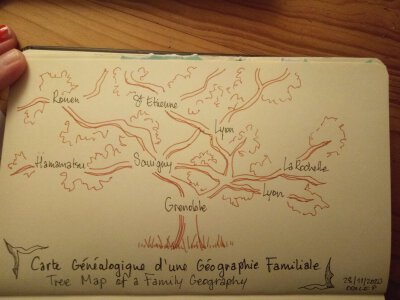 Rouen
St Etienne
Lyon
Hamamatsu
Savigny
La Rochelle
Lyon
Grenoble
Carte Généalogique d'une Géographie Familiale
Tree Map of a Family Geography
28/11/2020